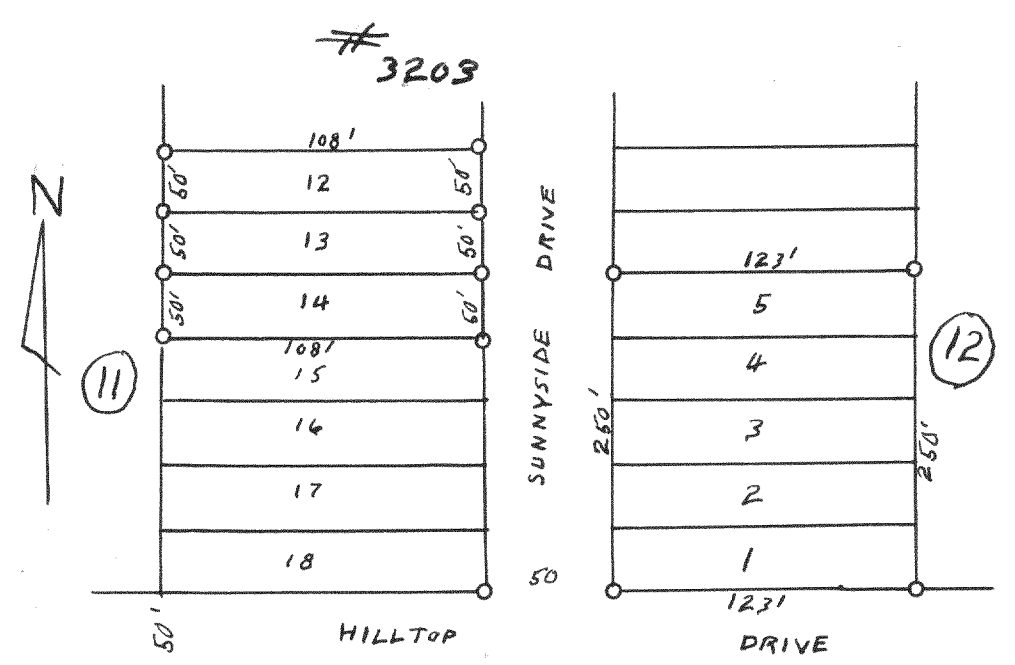 # 3203
N
108'
50' 12 50'
50' 13 50'
50' 14 50'
108'
15
16
17
18
11
50'
HILLTOP DRIVE
SUNNYSIDE DRIVE
50
123'
5
4
3
2
1
250'
250'
123'
12